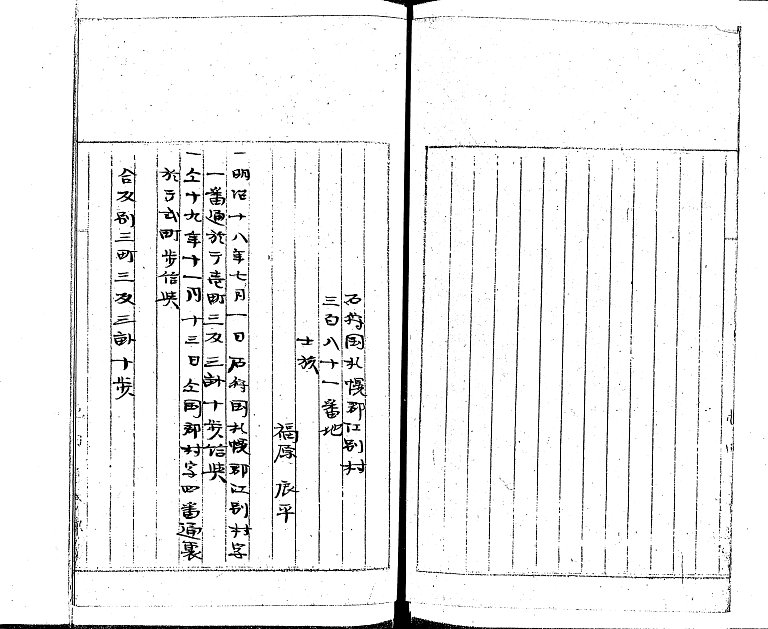 石狩国札幌郡江別村
三百八十一番地
士族
福原辰平
一明治十八年七月一日石狩国札幌郡江別村字
一番通於テ壱町三反三畝十歩給与
一仝十九年十一月十三日仝国郡村字四番通裏
於テ弐町歩給与
合反別三町三反三畝十歩